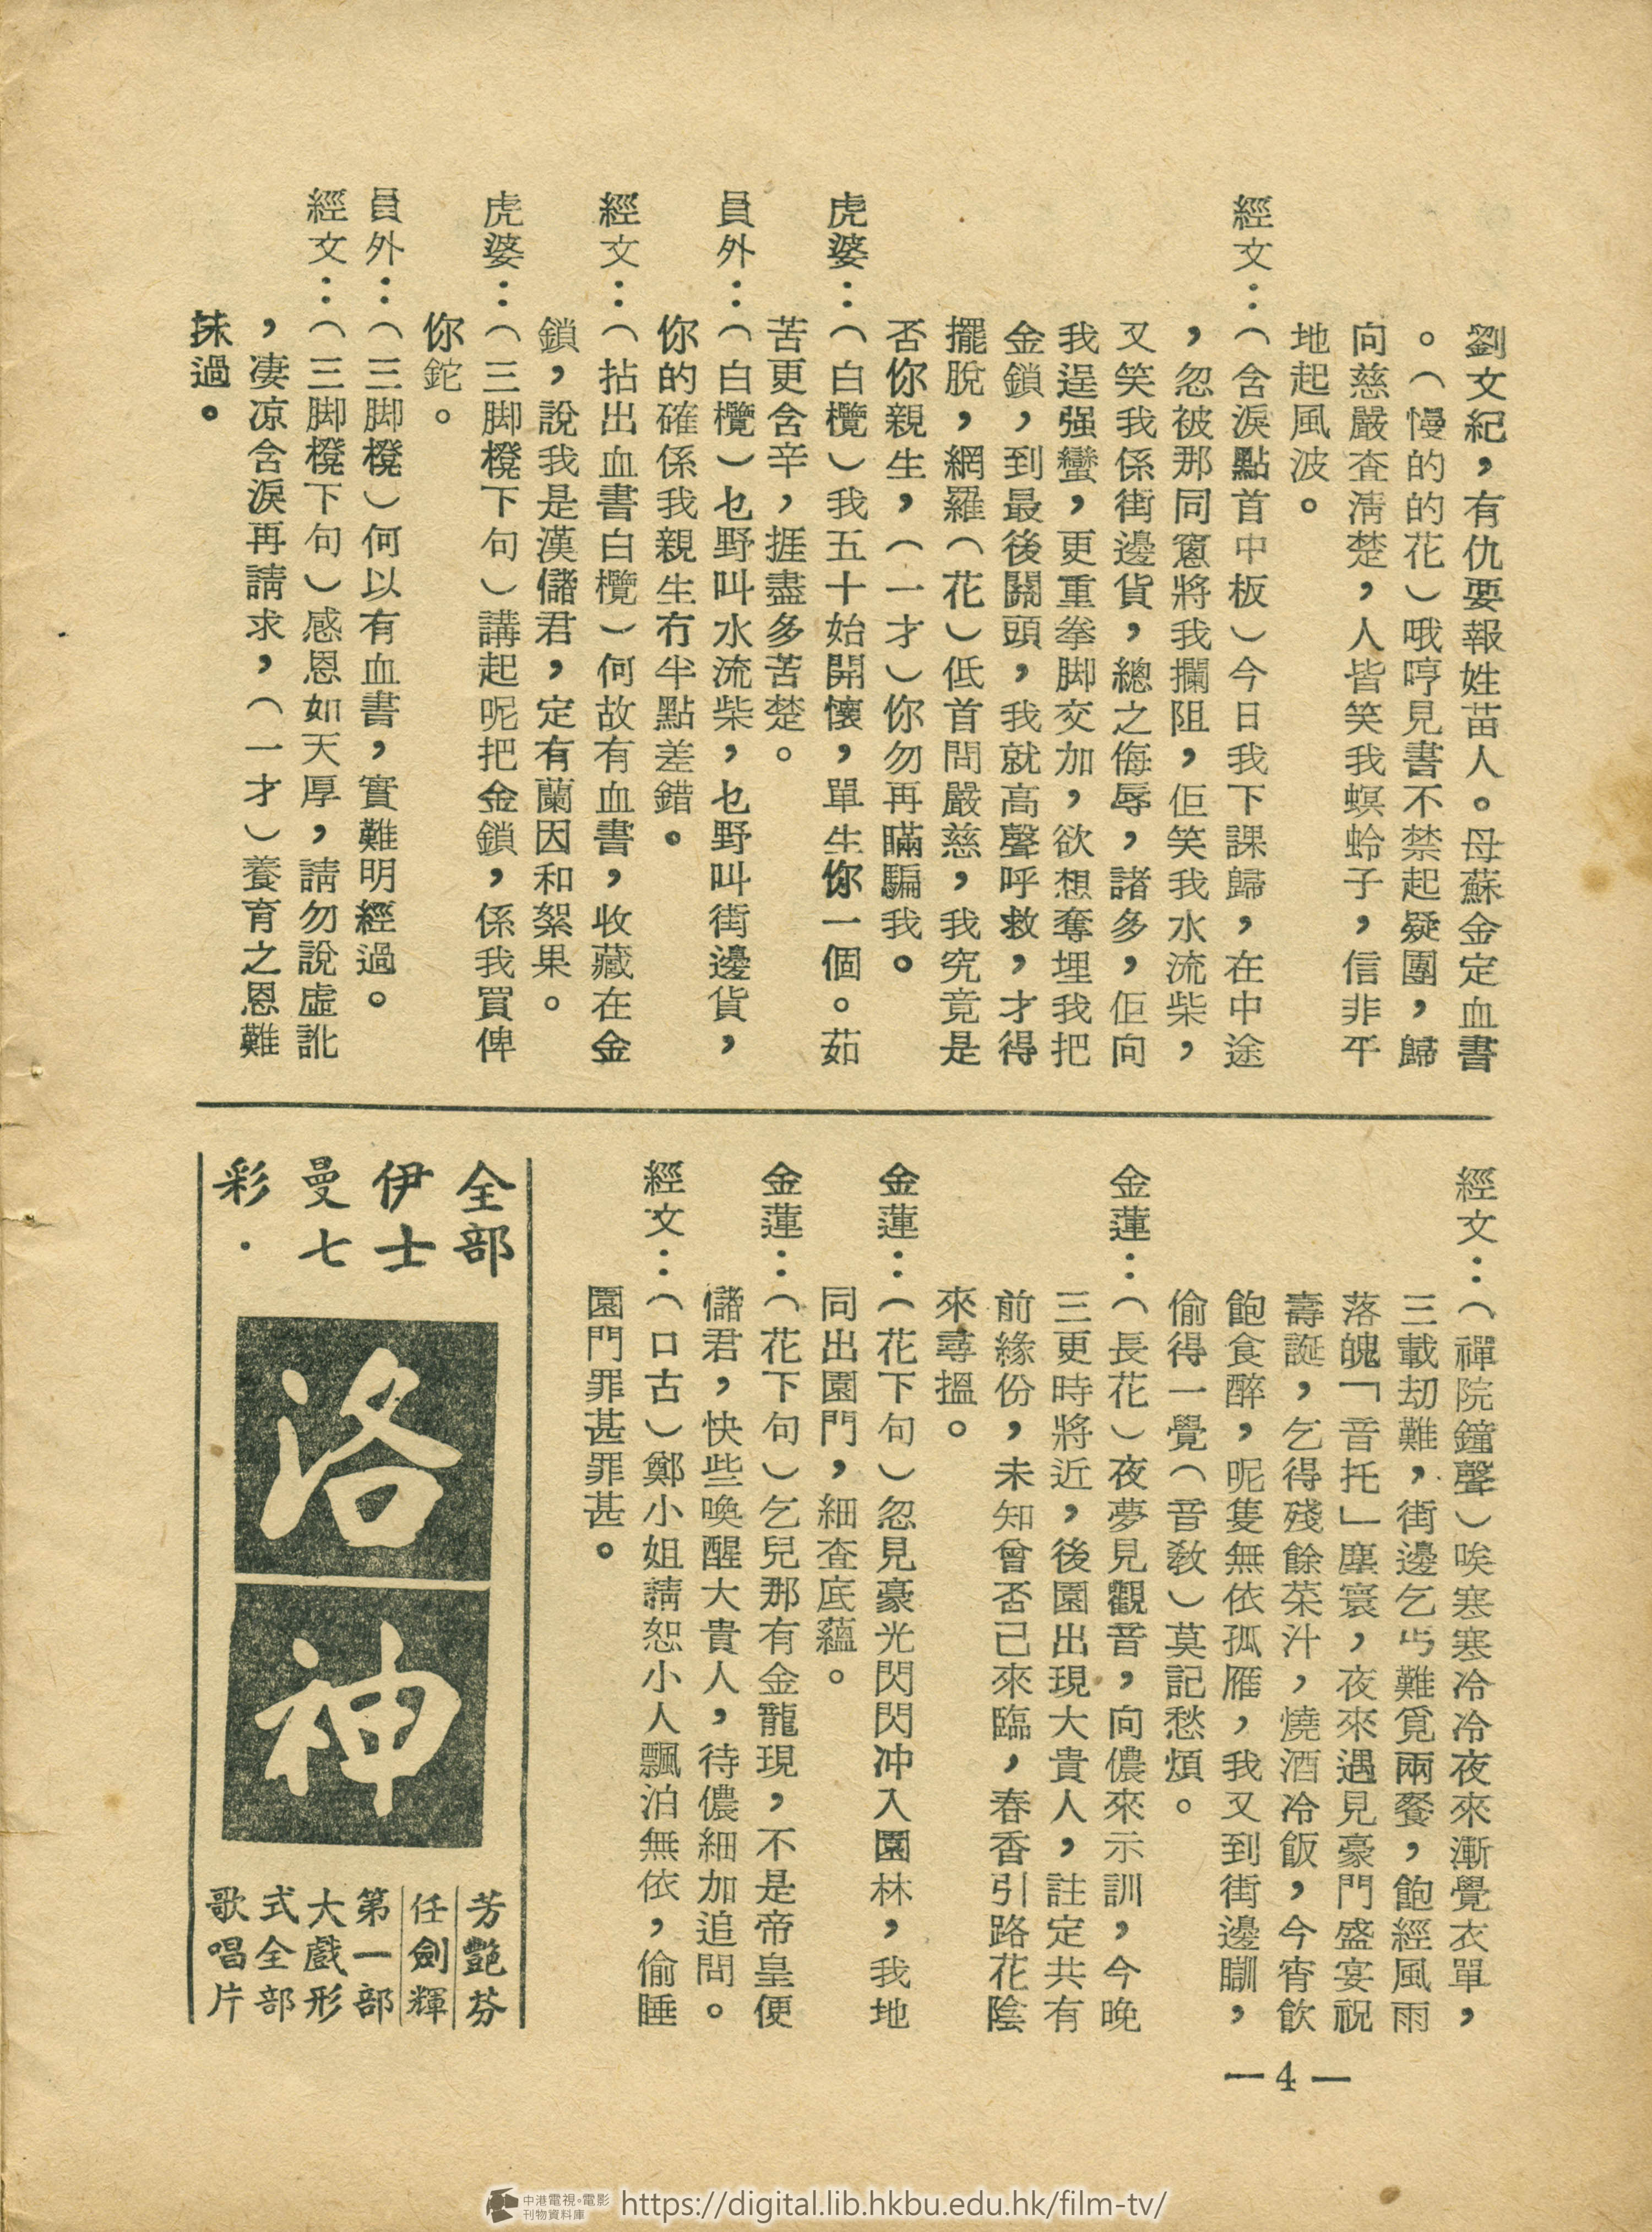 劉文紀，有仇要報姓苗人。母蘇金定血書
。（慢的的花）哦哼見書不禁起疑團，歸
向慈嚴查清楚，人皆笑我螟蛉子，信非平
地起風波。
經文：（含淚點首中板）今日我下課歸，在中途
，忽被那同窻將我攔阻，佢笑我水流柴，
又笑我係街邊貨，總之侮辱，諸多，佢向
我逞强蠻，更重拳脚交加，欲想奪埋我把
金鎖，到最後關頭，我就高聲呼救，才得
擺脫，網羅（花）低首問嚴慈，我究竟是
否你親生，（一才）你勿再瞞騙我。
虎婆：（白欖）我五十始開懷，單生你一個。茹
苦更含辛，捱盡多苦楚。
員外：（白欖）乜野叫水流柴，乜野叫街邊貨，
你的確係我親生冇半點差錯。
經文：（拈出血書白欖）何故有血書，收藏在金
鎖，說我是漢儲君，定有蘭因和絮果。
虎婆：（三脚櫈下句）講起呢把金鎖，係我買俾
你鉈。
員外：（三脚櫈）何以有血書，實難明經過。
經文：（三脚櫈下句）感恩如天厚，請勿說虛訛
，凄凉含淚再請求，（一才）養育之恩難
抹過。
經文：（禪院鐘聲）唉寒寒冷冷夜來漸覺衣單，
三載刧難，街邊乞丐難覓兩餐，飽經風雨
落魄「音托」塵寰，夜來遇見豪門盛宴祝
壽誕，乞得殘餘菜汁，燒酒冷飯，今宵飲
飽食醉，呢隻無依孤雁，我又到街邊瞓，
偷得一覺（音敎）莫記愁煩。
金蓮：（長花）夜夢見觀音，向儂來示訓，今晚
三更時將近，後園出現大貴人，註定共有
前緣份，未知曾否己來臨，春香引路花陰
來尋搵。
金蓮：（花下句）忽見豪光閃閃冲入園林，我地
同出園門，細查底蘊。
金蓮：（花下句）乞兒那有金龍現，不是帝皇便
儲君，快些喚醒大貴人，待儂細加追問。
經文：（口古）鄭小姐請恕小人飄泊無依，偷睡
園門罪甚罪甚。
全部
伊士
曼七
彩·
洛神
芳艷芬
任劍輝
第一部
大戲形
式全部
歌唱片
—4—
中港電視·電影
刊物資料庫
https://digital.lib.hkbu.edu.hk/film-tv/